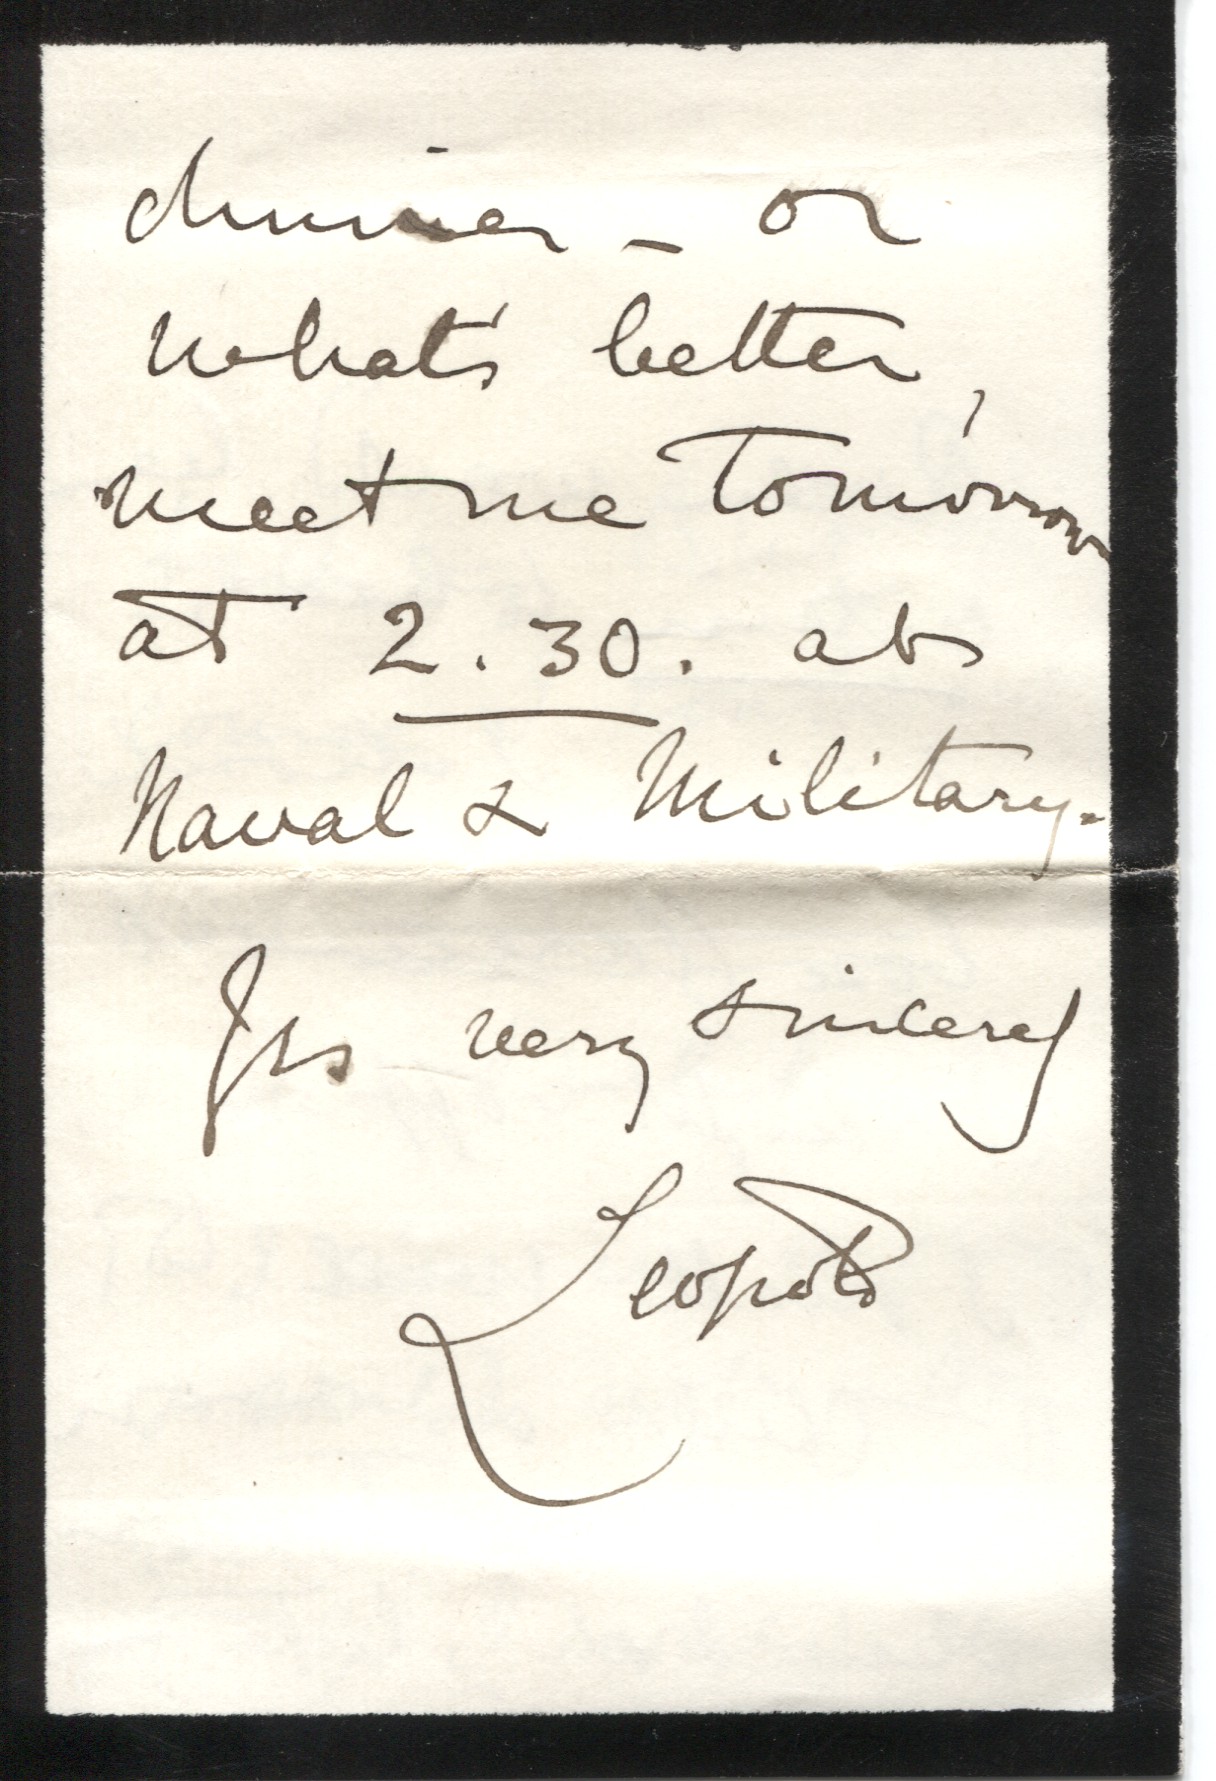 dinner – or
what's better,
meet me tomorrow
at 2.30. at
Naval & Military.
Yrs very sincerely
Leopold